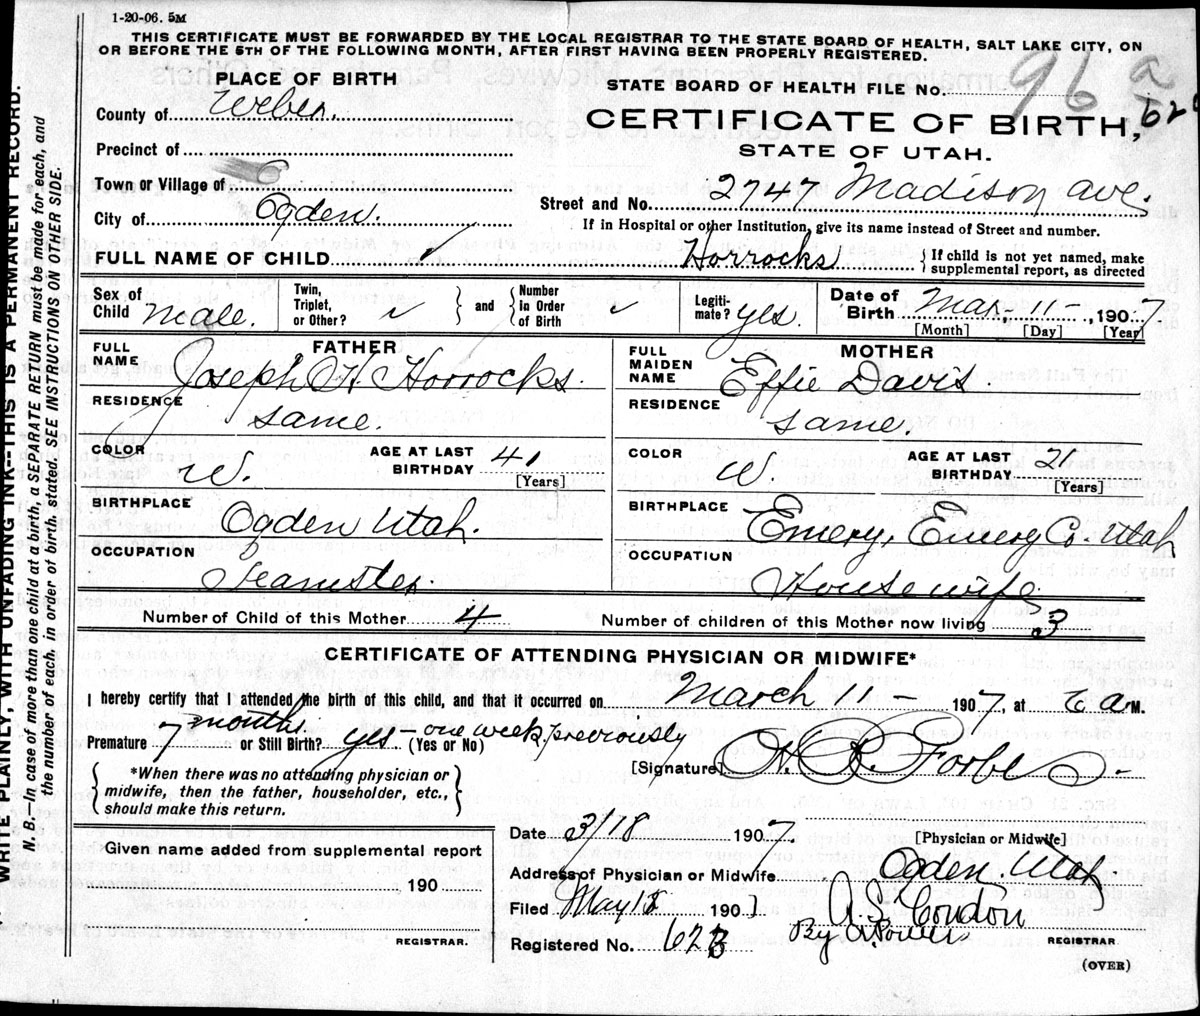 1-20-06. 5M
THIS CERTIFICATE MUST BE FORWARDED BY THE LOCAL REGISTRAR TO THE STATE BOARD OF HEALTH, SALT LAKE CITY, ON
OR BEFORE THE 5TH OF THE FOLLOWING MONTH, AFTER FIRST HAVING BEEN PROPERLY REGISTERED.
WRITE PLAINLY, WITH UNFADING INK--THIS IS A PERMANENT RECORD.
N. B.--In case of more than one child at a birth, a SEPARATE RETURN must be made for each, and
the number of each, in order of birth, stated. SEE INSTRUCTIONS ON OTHER SIDE.
PLACE OF BIRTH
County of Weber.
Precinct of
Town or Village of
City of Ogden.
STATE BOARD OF HEALTH FILE No. 96 a
62
CERTIFICATE OF BIRTH,
STATE OF UTAH.
Street and No. 2747 Madison Ave.
If in Hospital or other Institution, give its name instead of Street and number.
FULL NAME OF CHILD ✓ Horrocks { If child is not yet named, make
supplemental report, as directed
Sex of Child male. Twin, Triplet, or Other? ✓ } and { Number in Order of Birth ✓ Legiti- mate? yes. Date of Birth Mar. 11 - , 1907
[Month] [Day] [Year]
FATHER
FULL NAME Joseph H. Horrocks.
RESIDENCE same.
COLOR W. AGE AT LAST BIRTHDAY 41
[Years]
BIRTHPLACE Ogden Utah.
OCCUPATION Teamster.
MOTHER
FULL MAIDEN NAME Effie Davis.
RESIDENCE same.
COLOR W AGE AT LAST BIRTHDAY 21
[Years]
BIRTHPLACE Emery, Emery Co. Utah
OCCUPATION Housewife.
Number of Child of this Mother 4 Number of children of this Mother now living 3
CERTIFICATE OF ATTENDING PHYSICIAN OR MIDWIFE*
I hereby certify that I attended the birth of this child, and that it occurred on March 11 - 1907, at 6 a M.
Premature 7 months. or Still Birth? yes - one week previously
(Yes or No)
[Signature] Forbes -
*When there was no attending physician or
midwife, then the father, householder, etc.,
should make this return.
Given name added from supplemental report
190
REGISTRAR.
Date 3/18 1907. [Physician or Midwife]
Address of Physician or Midwife Ogden. Utah
Filed May 18 1907
A. S. Condon
By
REGISTRAR.
Registered No. 62B
(OVER)